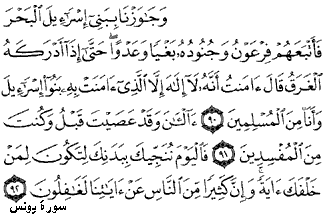 وَجَٰوَزْنَا بِبَنِىٓ إِسْرَٰٓءِيلَ ٱلْبَحْرَ
فَأَتْبَعَهُمْ فِرْعَوْنُ وَجُنُودُهُۥ بَغْيًا وَعَدْوًا ۖ حَتَّىٰٓ إِذَآ أَدْرَكَهُ
ٱلْغَرَقُ قَالَ ءَامَنتُ أَنَّهُۥ لَآ إِلَٰهَ إِلَّا ٱلَّذِىٓ ءَامَنَتْ بِهِۦ بَنُوٓا۟ إِسْرَٰٓءِيلَ
وَأَنَا۠ مِنَ ٱلْمُسْلِمِينَ ٩٠ ءَآلْـَٰٔنَ وَقَدْ عَصَيْتَ قَبْلُ وَكُنتَ
مِنَ ٱلْمُفْسِدِينَ ٩١ فَٱلْيَوْمَ نُنَجِّيكَ بِبَدَنِكَ لِتَكُونَ لِمَنْ
خَلْفَكَ ءَايَةً ۚ وَإِنَّ كَثِيرًا مِّنَ ٱلنَّاسِ عَنْ ءَايَٰتِنَا لَغَٰفِلُونَ ٩٢
سورة يونس